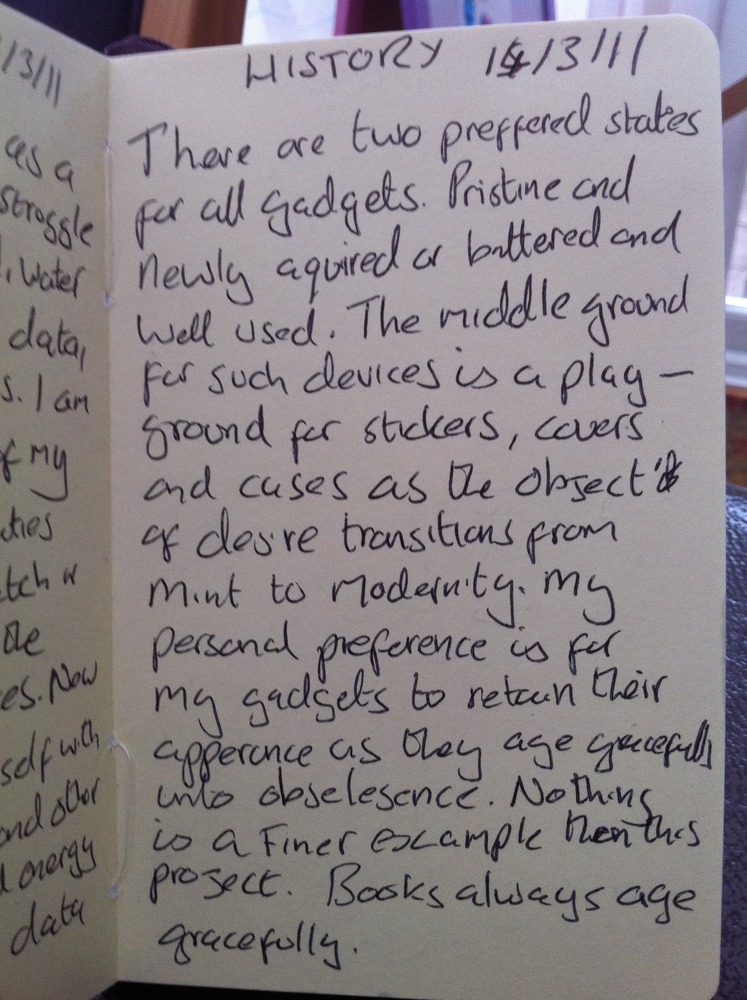 /3/11
as a
struggle
water
data,
s. I am
of my
the
es. Now
self with
and other
energy
data
HISTORY 14/3/11
There are two preffered states
for all gadgets. Pristine and
newly aquired or battered and
well used. The middle ground
for such devices is a play-
ground for stickers, covers
and cases as the object
of desire transitions from
mint to modernity. My
personal preference is for
my gadgets to retain their
apperance as they age gracefully
into obselesence. Nothing
is a finer example then this
project. Books always age
gracefully.